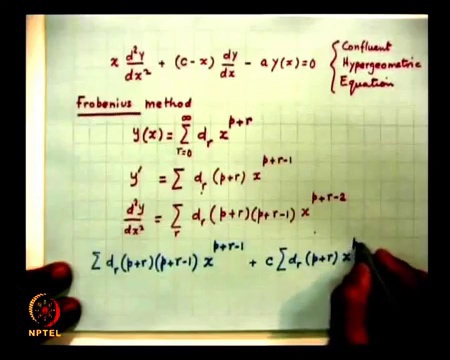 x d²y/dx² + (c-x) dy/dx - a y(x) = 0 { Confluent
Hypergeometric
Equation }
Frobenius method
y(x) = ∑_{r=0}^{∞} d_r x^{p+r}
y′ = ∑ d_r (p+r) x^{p+r-1}
d²y/dx² = ∑_r d_r (p+r)(p+r-1) x^{p+r-2}
∑ d_r (p+r)(p+r-1) x^{p+r-1} + c ∑ d_r (p+r) x^p
NPTEL